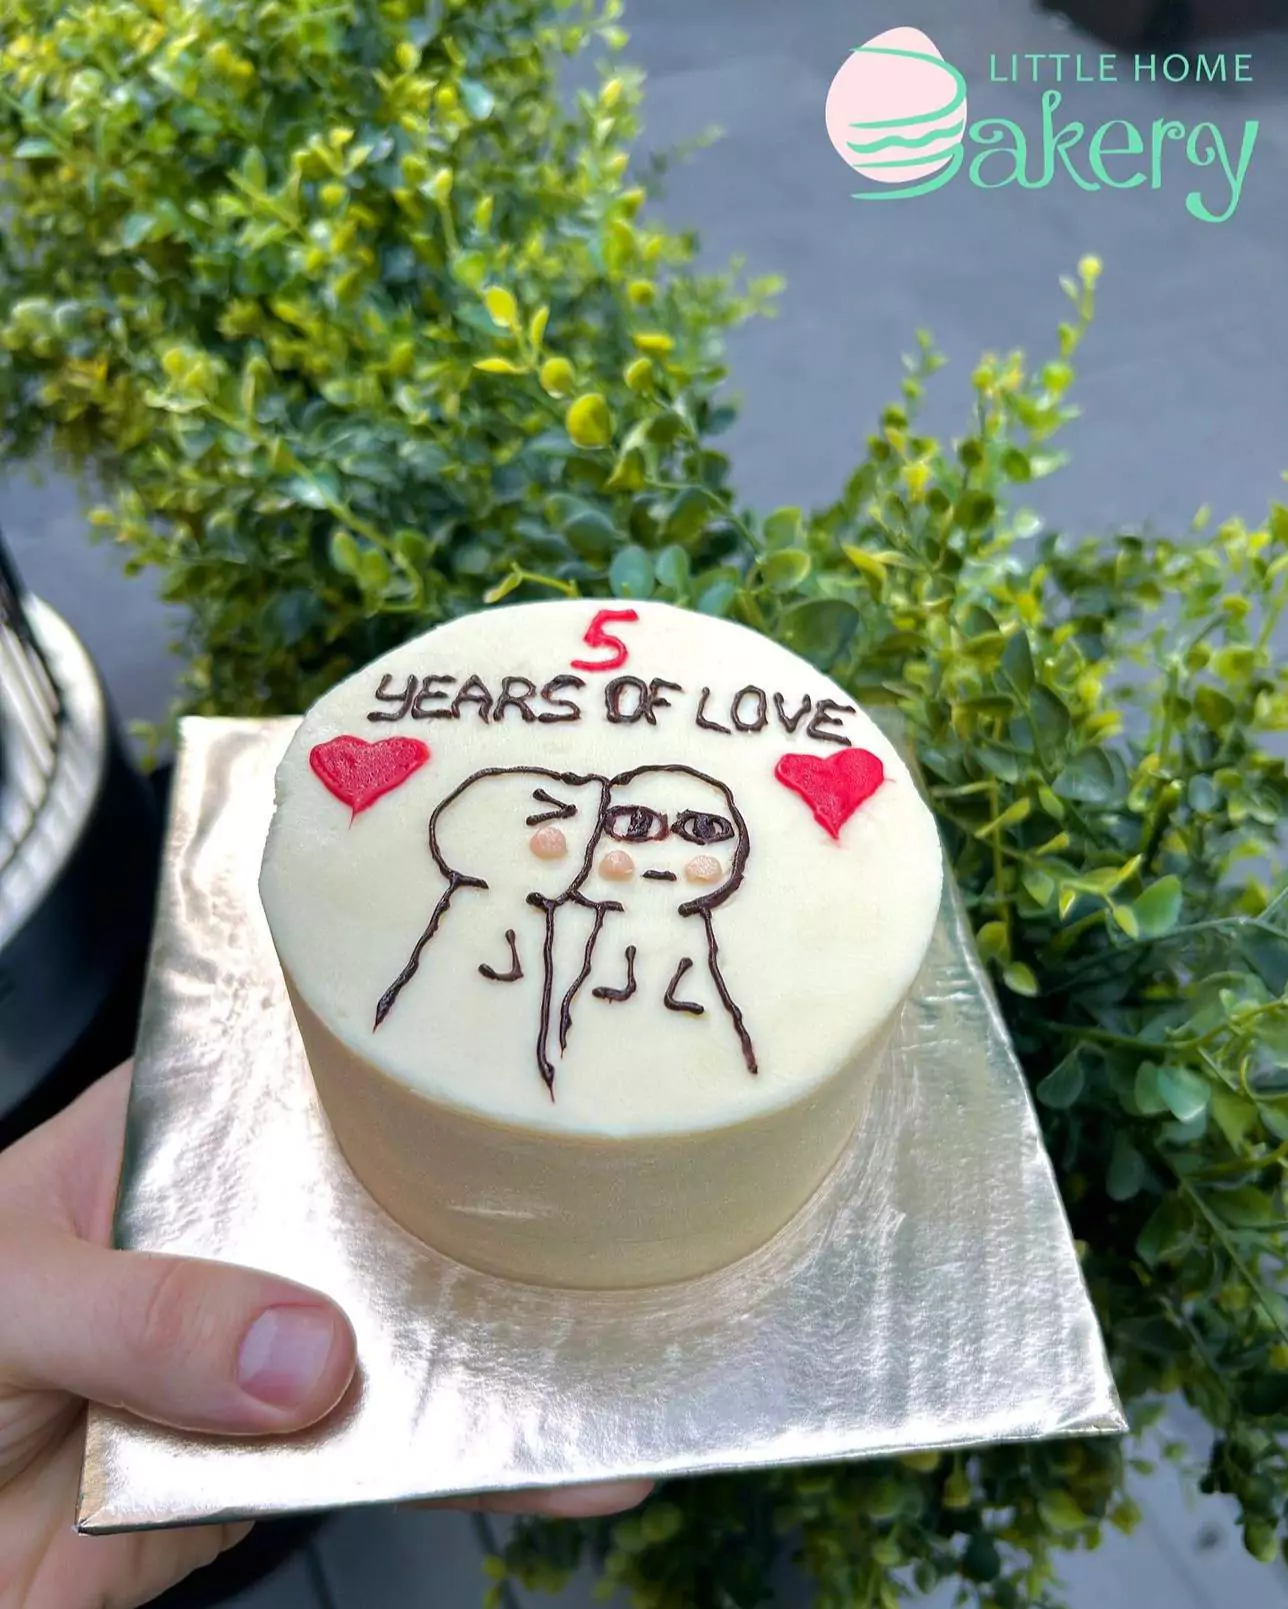 LITTLE HOME
Bakery
5
YEARS OF LOVE